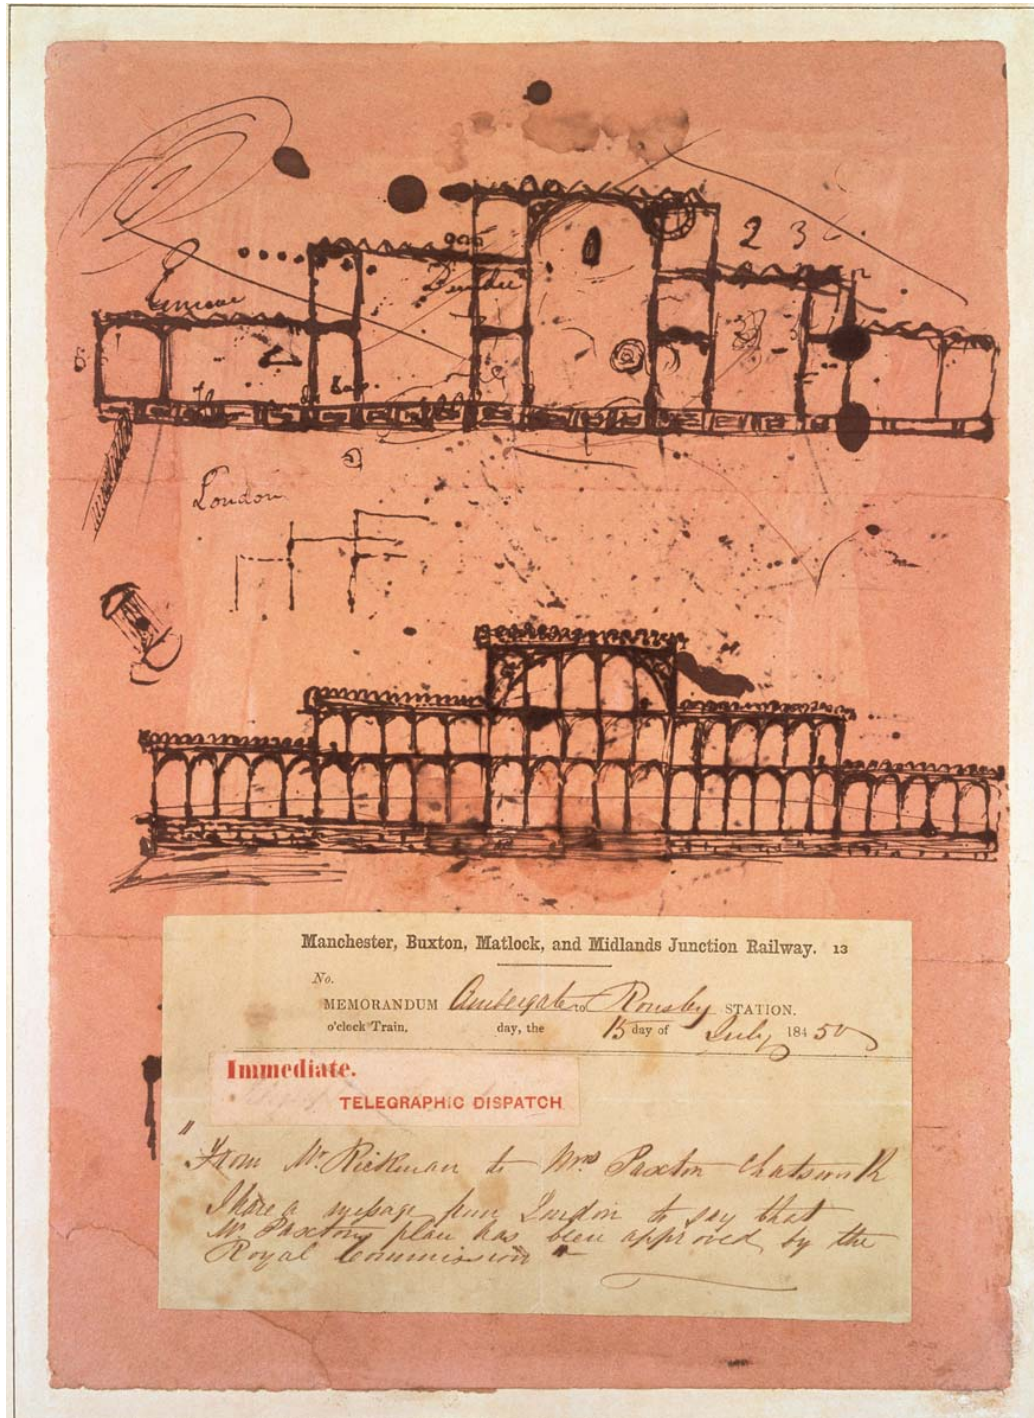 2 3
London
Manchester, Buxton, Matlock, and Midlands Junction Railway. 13
No.
MEMORANDUM Ambergate to Rowsley STATION.
o'clock Train, day, the 15 day of July 18450
Immediate.
TELEGRAPHIC DISPATCH
"From Mr. Rickman to Mrs Paxton Chatsworth
I have a message from London to say that
Mr Paxtons plan has been approved by the
Royal Commission"